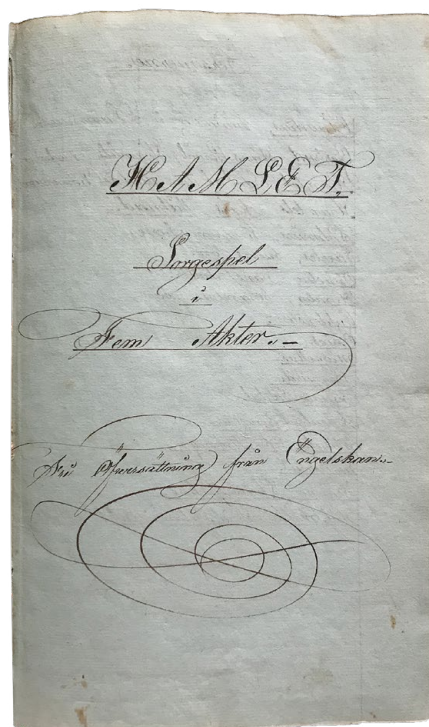 HAMLET.
Sorgespel
i
Fem Akter.-
Fri Öfversättning från Engelskan.-